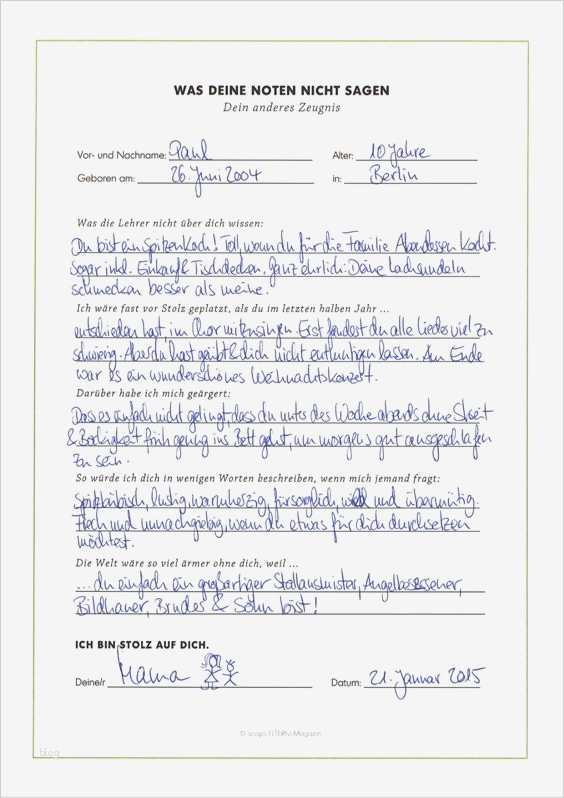 WAS DEINE NOTEN NICHT SAGEN
Dein anderes Zeugnis
Vor- und Nachname: Paul Alter: 10 Jahre
Geboren am: 26. Juni 2004 in: Berlin
Was die Lehrer nicht über dich wissen:
Du bist ein Spitzenkoch! Toll, wenn du für die Familie Abendessen kochst.
Sogar inkl. Einkauf & Tischdecken. Ganz ehrlich: Deine Lachsnudeln
schmecken besser als meine.
Ich wäre fast vor Stolz geplatzt, als du im letzten halben Jahr ...
entschieden hast, im Chor mitzusingen. Erst fandest du alle Lieder viel zu
schwierig. Aber du hast geübt & dich nicht entmutigen lassen. Am Ende
war es ein wunderschönes Weihnachtskonzert.
Darüber habe ich mich geärgert:
Dass es einfach nicht gelingt, dass du unter der Woche abends ohne Streit
& Bockigkeit früh genug ins Bett gehst, um morgens gut ausgeschlafen
zu sein.
So würde ich dich in wenigen Worten beschreiben, wenn mich jemand fragt:
Spitzbübisch, lustig, warmherzig, fürsorglich, wild und übermütig.
Frech und unnachgiebig, wenn du etwas für dich durchsetzen
möchtest.
Die Welt wäre so viel ärmer ohne dich, weil ...
... du einfach ein großartiger Stallausmister, Angelbesessener,
Bildhauer, Bruder & Sohn bist!
ICH BIN STOLZ AUF DICH.
Deine/r Mama Datum: 21. Januar 2015
blog